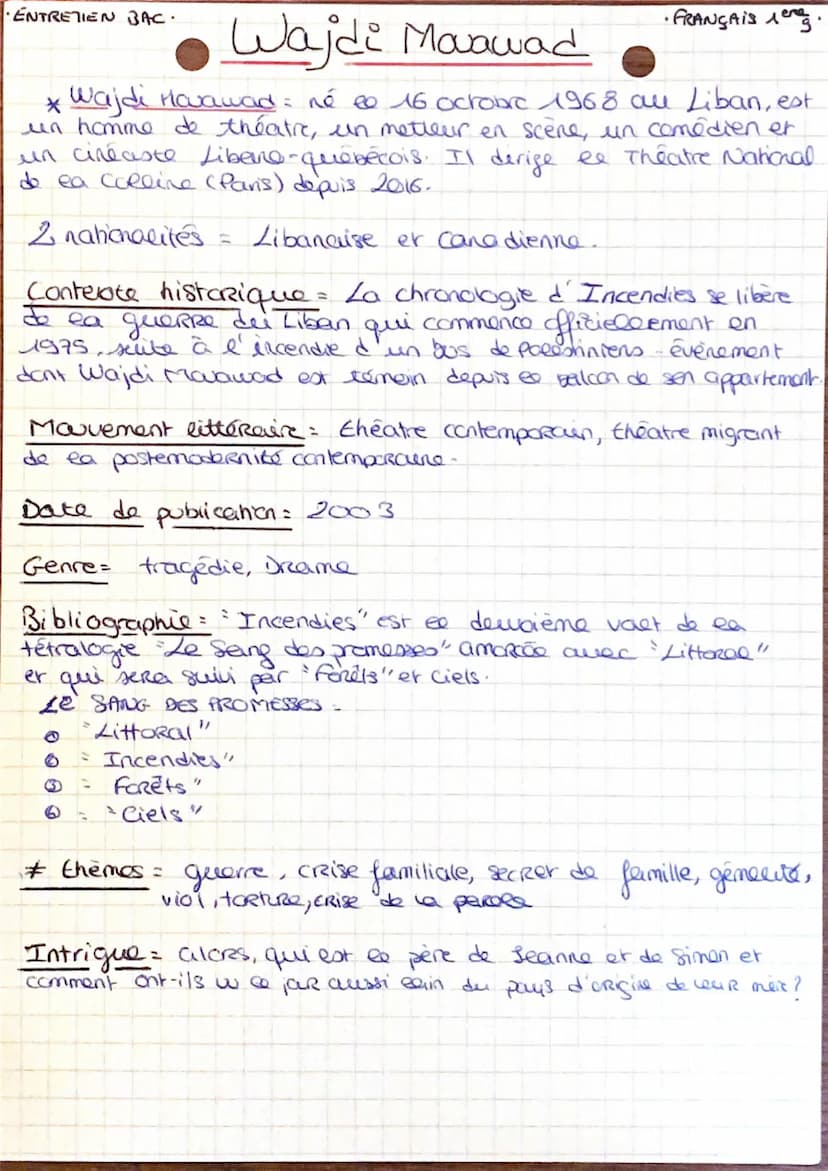 · ENTRETIEN BAC ·
· FRANÇAIS 1ère g ·
Wajdi Mouawad
* Wajdi Mouawad = né le 16 octobre 1968 au Liban, est
un homme de théâtre, un metteur en scène, un comédien et
un cinéaste Libano-québécois. Il dirige le Théâtre National
de la Colline (Paris) depuis 2016.
2 nationalités = Libanaise et Canadienne.
Contexte historique = La chronologie d'Incendies se libère
de la guerre du Liban qui commence officiellement en
1975, suite à l'incendie d'un bus de Palestiniens - événement
dont Wajdi Mouawad est témoin depuis le balcon de son appartement.
Mouvement littéraire = théâtre contemporain, théâtre migrant
de la postemodernité contemporaine.
Date de publication = 2003
Genre = tragédie, Drame
Bibliographie = "Incendies" est le deuxième volet de la
tétralogie "Le Sang des promesses" amorcée avec "Littoral"
et qui sera suivi par "Forêts" et Ciels.
LE SANG DES PROMESSES =
① "Littoral"
② = Incendies"
③ = Forêts"
④ = "Ciels"
* thèmes = guerre, crise familiale, secret de famille, gémellité,
viol, torture, crise de la parole
Intrigue = alors, qui est le père de Jeanne et de Simon et
comment ont-ils vu le jour aussi loin du pays d'origine de leur mère ?